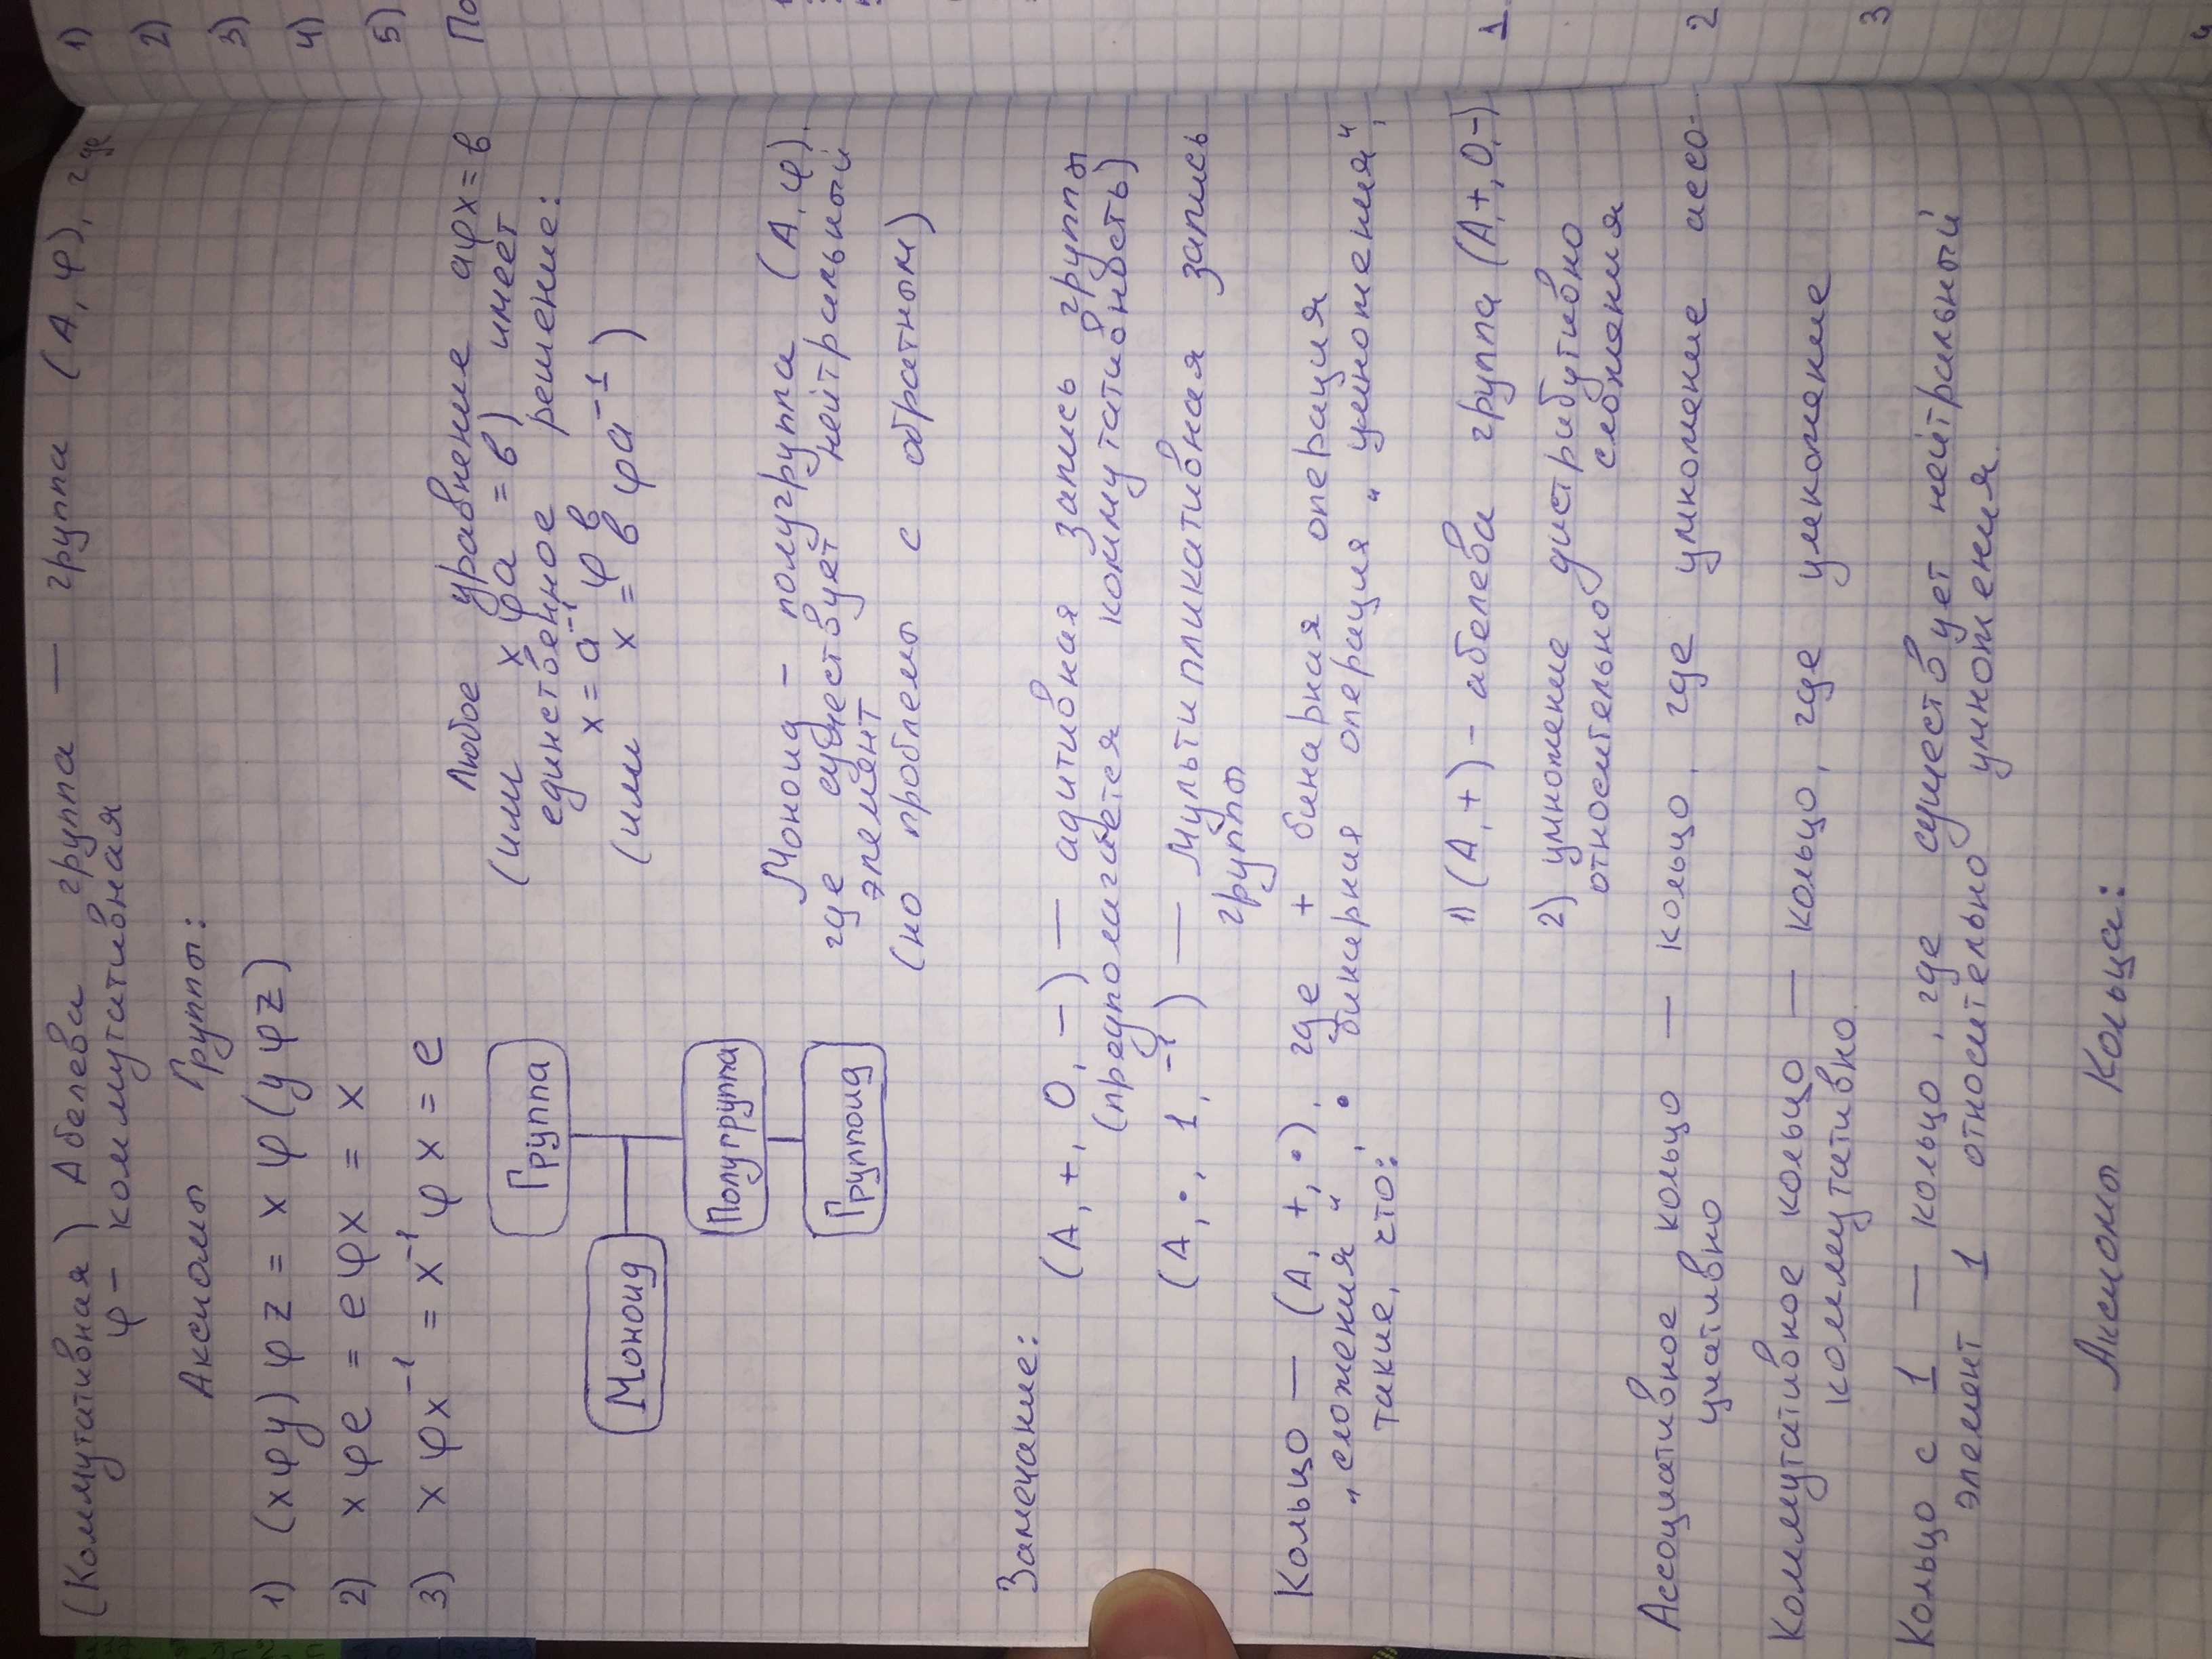 (Коммутативная) Абелева группа — группа (A, φ), где
φ - коммутативная
Аксиомы Группы:
1) (xφy)φz = xφ(yφz)
2) xφe = eφx = x
3) xφx⁻¹ = x⁻¹φx = e
Любое уравнение aφx = b
(или xφa = b) имеет
единственное решение:
x = a⁻¹φb
(или x = bφa⁻¹)
Группа
Моноид
Полугруппа
Группоид
Моноид - полугруппа (A, φ),
где существует нейтральный
элемент
(но проблемы с обратным)
Замечание:
(A, +, 0, −) — адитивная запись группы
(предполагается коммутативность)
(A, ·, 1, ⁻¹) — Мультипликативная запись
группы
Кольцо — (A, +, ·), где + бинарная операция
„сложения“, · бинарная операция „умножения“,
такие, что:
1) (A, +) - абелева группа (A, +, 0, −)
2) умножение дистрибутивно
относительно сложения
Ассоциативное кольцо — кольцо, где умножение ассо-
циативно
Коммутативное кольцо — кольцо, где умножение
коммутативно.
Кольцо с 1 — кольцо, где существует нейтральный
элемент 1 относительно умножения.
Аксиомы Кольца:
1)
2)
3)
4)
5)
По
1
2
3